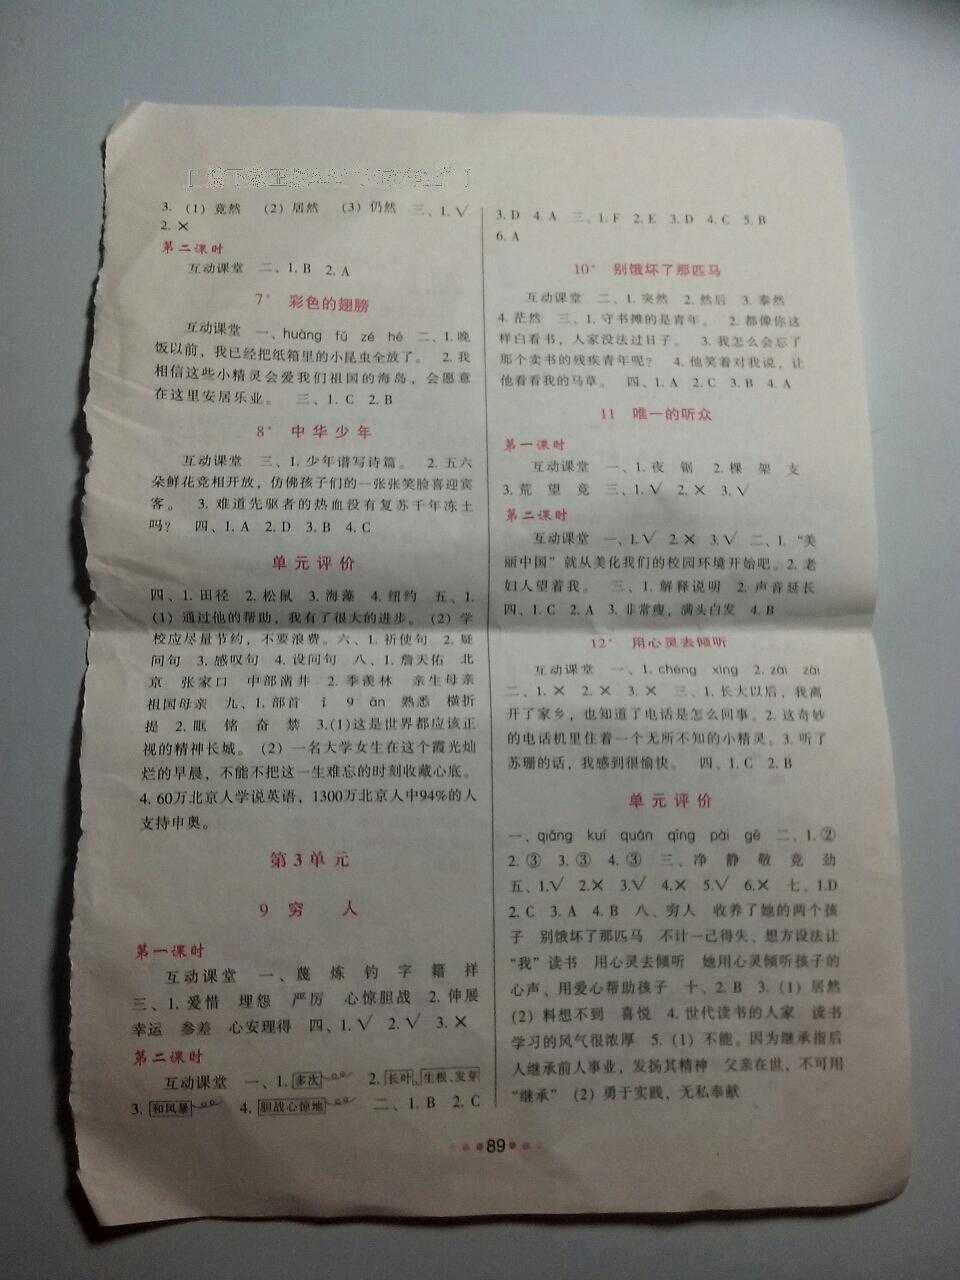 3. (1) 竟然 (2) 居然 (3) 仍然 三、1. √
2. ×
第二课时
互动课堂 二、1. B 2. A
7* 彩色的翅膀
互动课堂 一、huàng fū zé hē 二、1. 晚
饭以前，我已经把纸箱里的小昆虫全放了。 2. 我
相信这些小精灵会爱我们祖国的海岛，会愿意
在这里安居乐业。 三、1. C 2. B
8* 中华少年
互动课堂 三、1. 少年谱写诗篇。 2. 五六
朵鲜花竞相开放，仿佛孩子们的一张张笑脸喜迎宾
客。 3. 难道先驱者的热血没有复苏千年冻土
吗？ 四、1. A 2. D 3. B 4. C
单元评价
四、1. 田径 2. 松鼠 3. 海藻 4. 纽约 五、1.
(1) 通过他的帮助，我有了很大的进步。 (2) 学
校应尽量节约，不要浪费。六、1. 祈使句 2. 疑
问句 3. 感叹句 4. 设问句 八、1. 詹天佑 北
京 张家口 中部凿井 2. 季羡林 亲生母亲
祖国母亲 九、1. 部首 讠 9 ān 熟悉 横折
提 2. 眶 铭 奋 禁 3.(1)这是世界都应该正
视的精神长城。 (2) 一名大学女生在这个霞光灿
烂的早晨，不能不把这一生难忘的时刻收藏心底。
4. 60万北京人学说英语，1300万北京人中94%的人
支持申奥。
第3单元
9 穷 人
第一课时
互动课堂 一、蔑 炼 钓 字 籍 祥
三、1. 爱惜 埋怨 严厉 心惊胆战 2. 伸展
幸运 参差 心安理得 四、1. √ 2. √ 3. ×
第二课时
互动课堂 一、1. 多次 2. 长叶、生根、发芽
3. 和风暴 4. 胆战心惊地 二、1. B 2. C
3. D 4. A 三、1. F 2. E 3. D 4. C 5. B
6. A
10* 别饿坏了那匹马
互动课堂 二、1. 突然 2. 然后 3. 泰然
4. 茫然 三、1. 守书摊的是青年。 2. 都像你这
样白看书，人家没法过日子。 3. 我怎么会忘了
那个卖书的残疾青年呢？ 4. 他笑着对我说，让
他看看我的马草。 四、1. A 2. C 3. B 4. A
11 唯一的听众
第一课时
互动课堂 一、1. 夜 锯 2. 棵 架 支
3. 荒 望 竟 三、1. √ 2. × 3. √
第二课时
互动课堂 一、1. √ 2. × 3. √ 二、1. “美
丽中国”就从美化我们的校园环境开始吧。2. 老
妇人望着我。 三、1. 解释说明 2. 声音延长
四、1. C 2. A 3. 非常瘦，满头白发 4. B
12* 用心灵去倾听
互动课堂 一、1. chéng xìng 2. zài zài
二、1. × 2. × 3. × 三、1. 长大以后，我离
开了家乡，也知道了电话是怎么回事。2. 这奇妙
的电话机里住着一个无所不知的小精灵。3. 听了
苏珊的话，我感到很愉快。 四、1. C 2. B
单元评价
一、qiāng kuí quán qīng pài gē 二、1. ②
2. ③ 3. ③ 4. ③ 三、净 静 敬 竞 劲
五、1. √ 2. × 3. √ 4. × 5. √ 6. × 七、1. D
2. C 3. A 4. B 八、穷人 收养了她的两个孩
子 别饿坏了那匹马 不计一己得失、想方设法让
“我”读书 用心灵去倾听 她用心灵倾听孩子的
心声、用爱心帮助孩子 十、2. B 3. (1) 居然
(2) 料想不到 喜悦 4. 世代读书的人家 读书
学习的风气很浓厚 5. (1) 不能。因为继承指后
人继承前人事业，发扬其精神 父亲在世，不可用
“继承” (2) 勇于实践，无私奉献
89